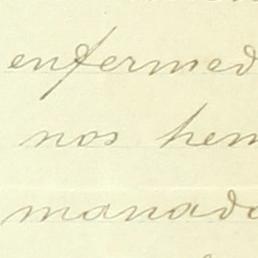 enfermed
nos hem
manado